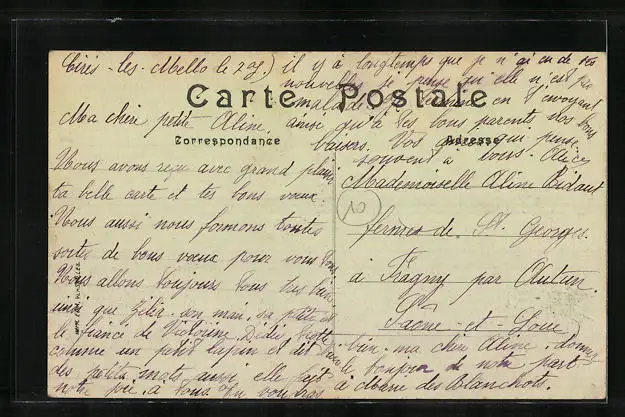 Cirès-les-Mello le 2 il y a longtemps que je n'ai eu de
nouvelles je pense qu'elle n'est pas
malade. Je termine en t'envoyant
Carte Postale
Ma chère petite Aline, ainsi qu'à tes bons parents nos bons
baisers. Vos qui pense
souvent à vous. Alice
Correspondance
Adresse
Nous avons reçu avec grand plaisir
ta belle carte et tes bons vœux.
Nous aussi nous formons toutes
sortes de bons vœux pour vous
Nous allons toujours tous très bien
ainsi que son mari, sa petite et
le fiancé de Victorine. trotte
comme un petit lapin et dit
des petits mots aussi elle fait
notre joie à tous. Tu voudras
Mademoiselle Aline Bidaut
10
fermes de St Georges
à Fragny par Autun
Saône-et-Loire
bien ma chère Aline donner
le bonjour de notre part
à des Blanchots.